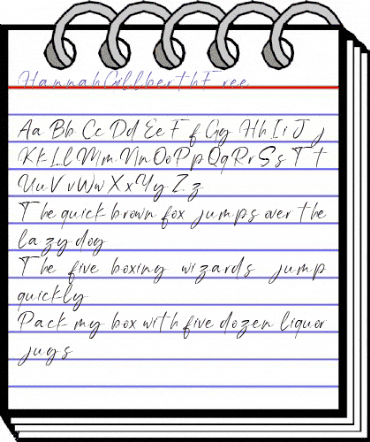 HannahGillberthFree
Aa Bb Cc Dd Ee Ff Gg Hh Ii Jj
Kk Ll Mm Nn Oo Pp Qq Rr Ss Tt
Uu Vv Ww Xx Yy Zz
The quick brown fox jumps over the
lazy dog
The five boxing wizards jump
quickly
Pack my box with five dozen liquor
jugs